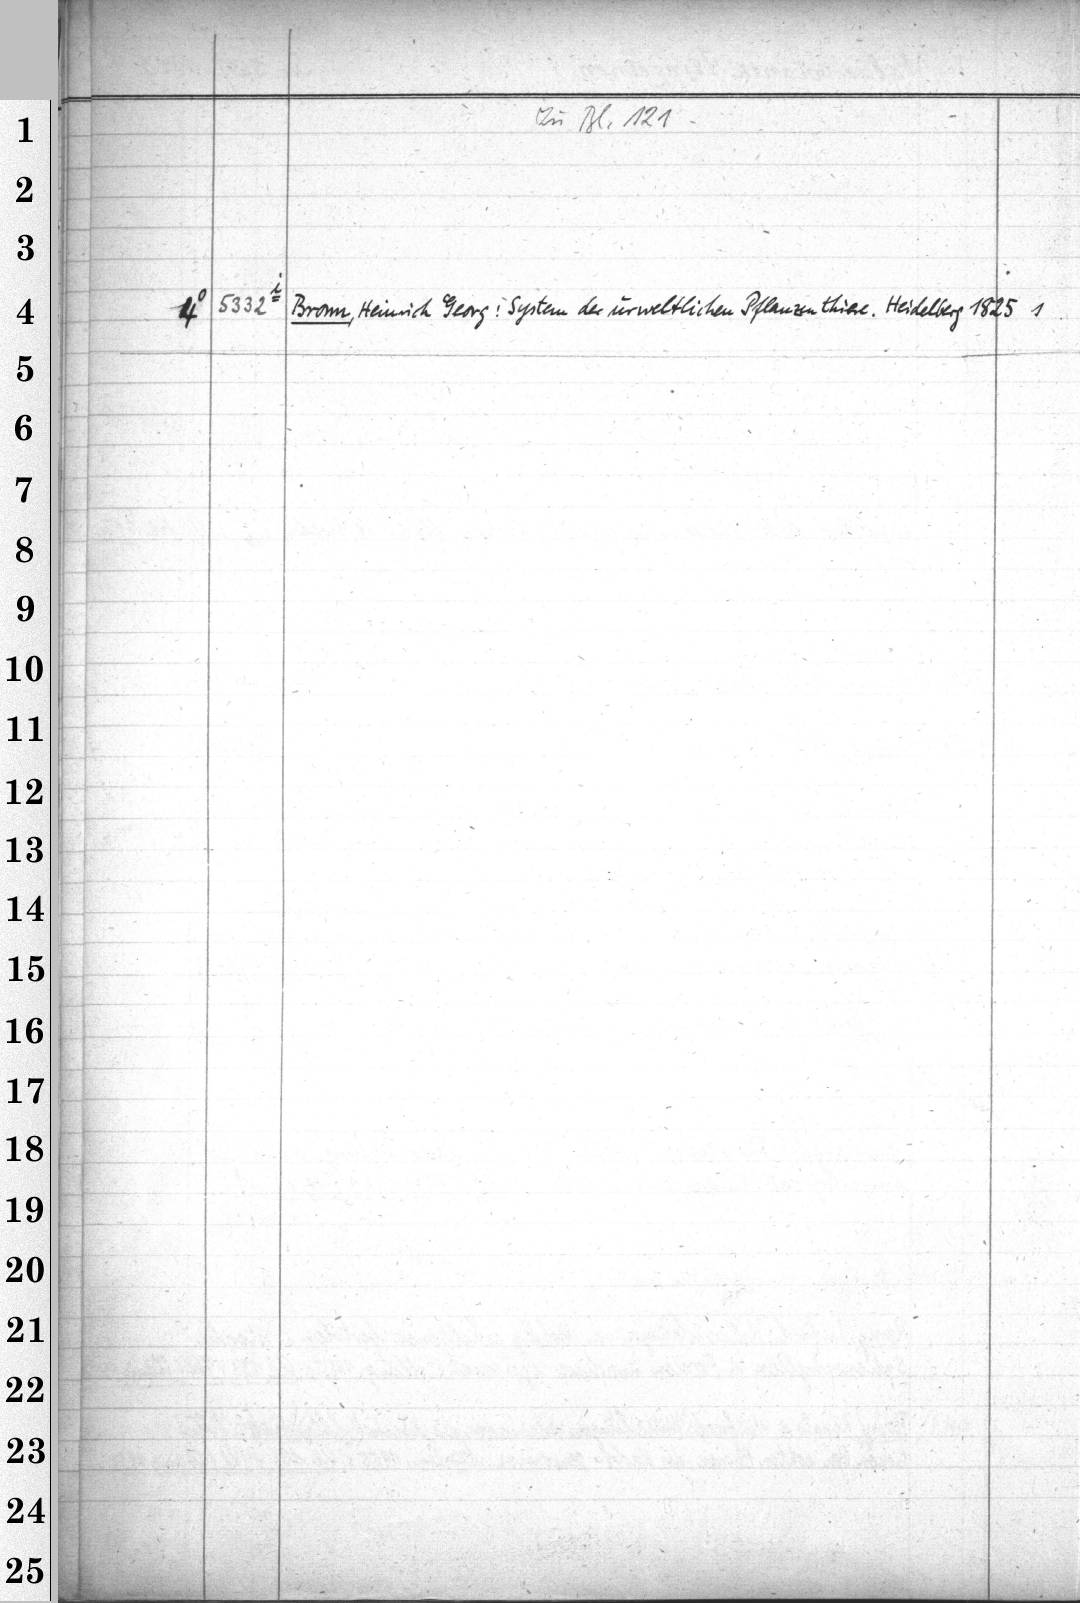 Zu Bl. 121
1
2
3
4 4° 5332 i Bronn, Heinrich Georg: System der urweltlichen Pflanzenthiere. Heidelberg 1825 1
5
6
7
8
9
10
11
12
13
14
15
16
17
18
19
20
21
22
23
24
25